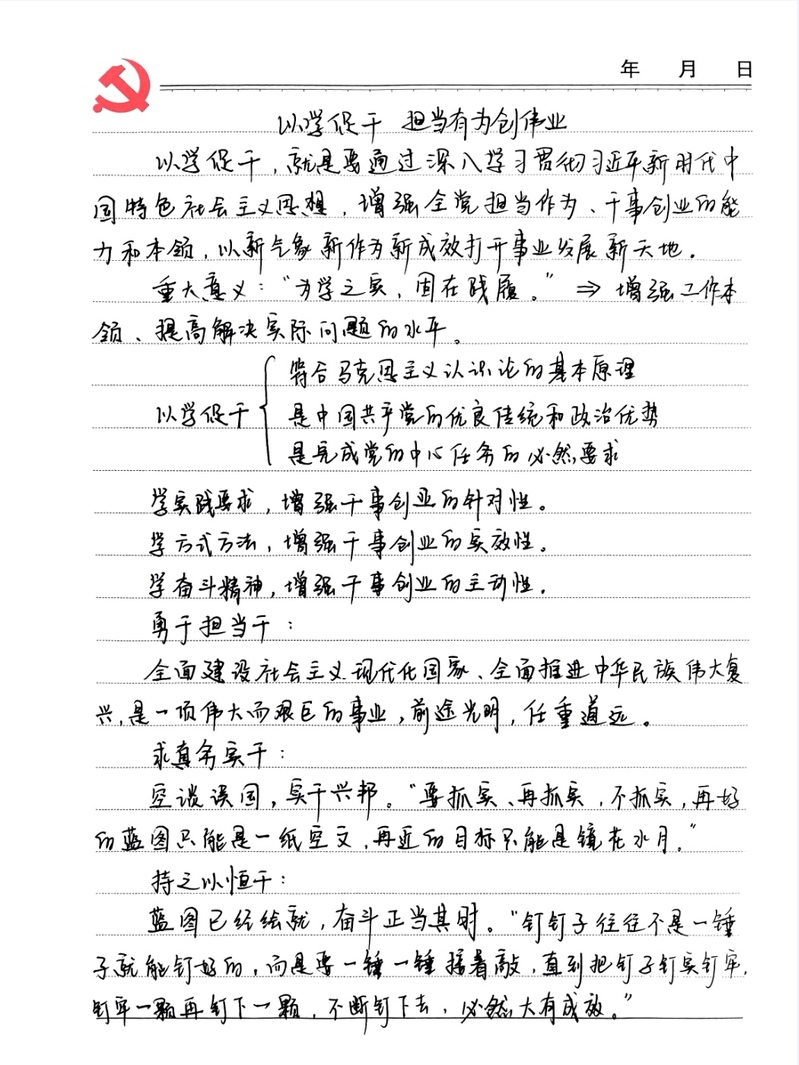 年 月 日
以学促干 担当有为创伟业
以学促干，就是要通过深入学习贯彻习近平新时代中
国特色社会主义思想，增强全党担当作为、干事创业的能
力和本领，以新气象新作为新成效打开事业发展新天地。
重大意义：“为学之实，固在践履。”⇒ 增强工作本
领、提高解决实际问题的水平。
符合马克思主义认识论的基本原理
以学促干 是中国共产党的优良传统和政治优势
是完成党的中心任务的必然要求
学实践要求，增强干事创业的针对性。
学方式方法，增强干事创业的实效性。
学奋斗精神，增强干事创业的主动性。
勇于担当干：
全面建设社会主义现代化国家、全面推进中华民族伟大复
兴，是一项伟大而艰巨的事业，前途光明，任重道远。
求真务实干：
空谈误国，实干兴邦。“要抓实、再抓实，不抓实，再好
的蓝图只能是一纸空文，再近的目标只能是镜花水月。”
持之以恒干：
蓝图已经绘就，奋斗正当其时。“钉钉子往往不是一锤
子就能钉好的，而是要一锤一锤接着敲，直到把钉子钉实钉牢，
钉牢一颗再钉下一颗，不断钉下去，必然大有成效。”